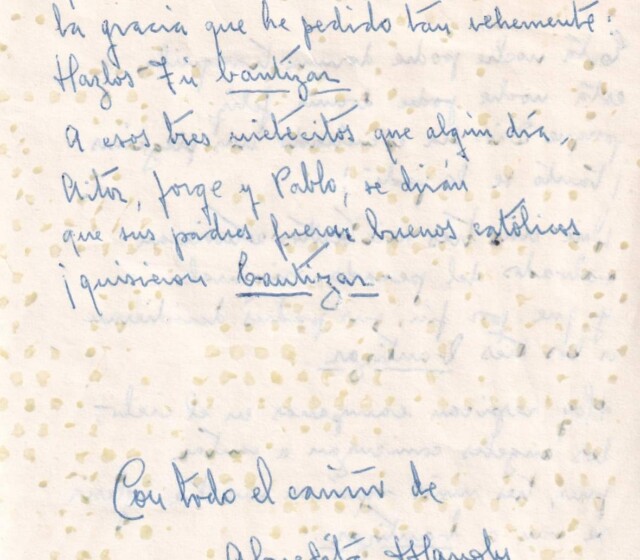 la gracia que he pedido tan vehemente:
Hazlos Tú bautizar
A esos tres nietecitos que algún día,
Aitor, Jorge y Pablo, se dirán
que sus padres fueran buenos católicos
¡quisieron bautizar
Con todo el cariño de